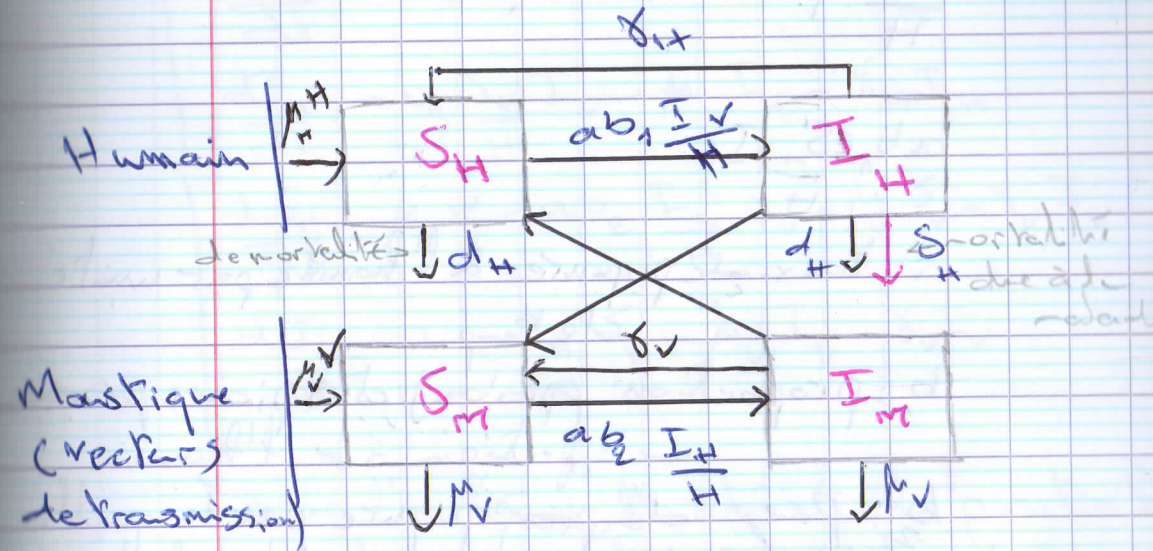 γ₁ₓ
Humain
H
S_H
ab₁ I_V/H
I_H
de mortalité
d_H
d_H
δ_H mortalité
due à la
γ_V
Moustique
(vecteurs
de transmission)
μ_V V
S_m
I_m
ab₂ I_H/H
μ_V
μ_V